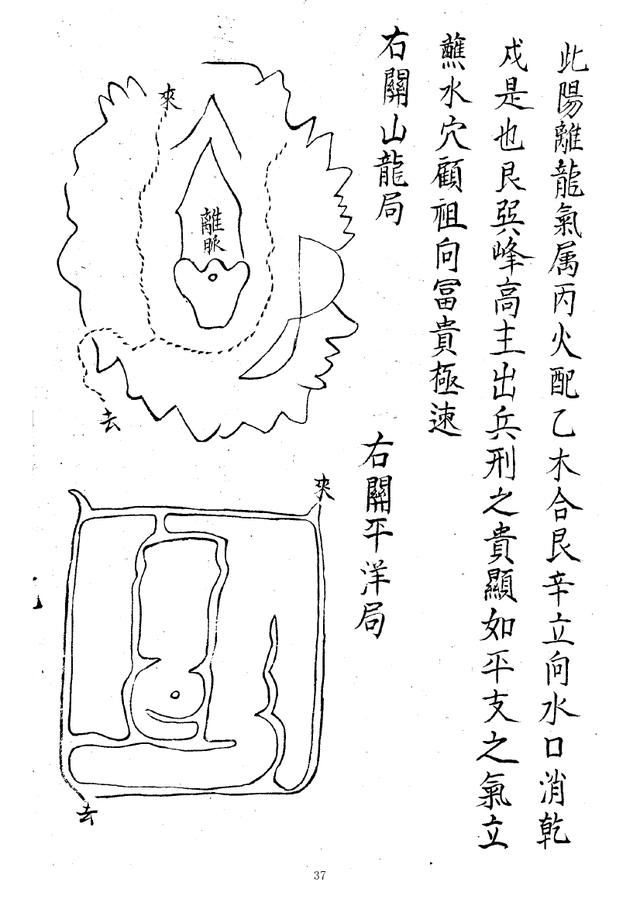 此陽離龍氣属丙火配乙木合艮辛立向水口消乾
戍是也艮巽峰高主出兵刑之貴顯如平支之氣立
蘸水穴顧祖向冨貴極速
右關山龍局
來
離
脈
去
右關平洋局
來
去
37